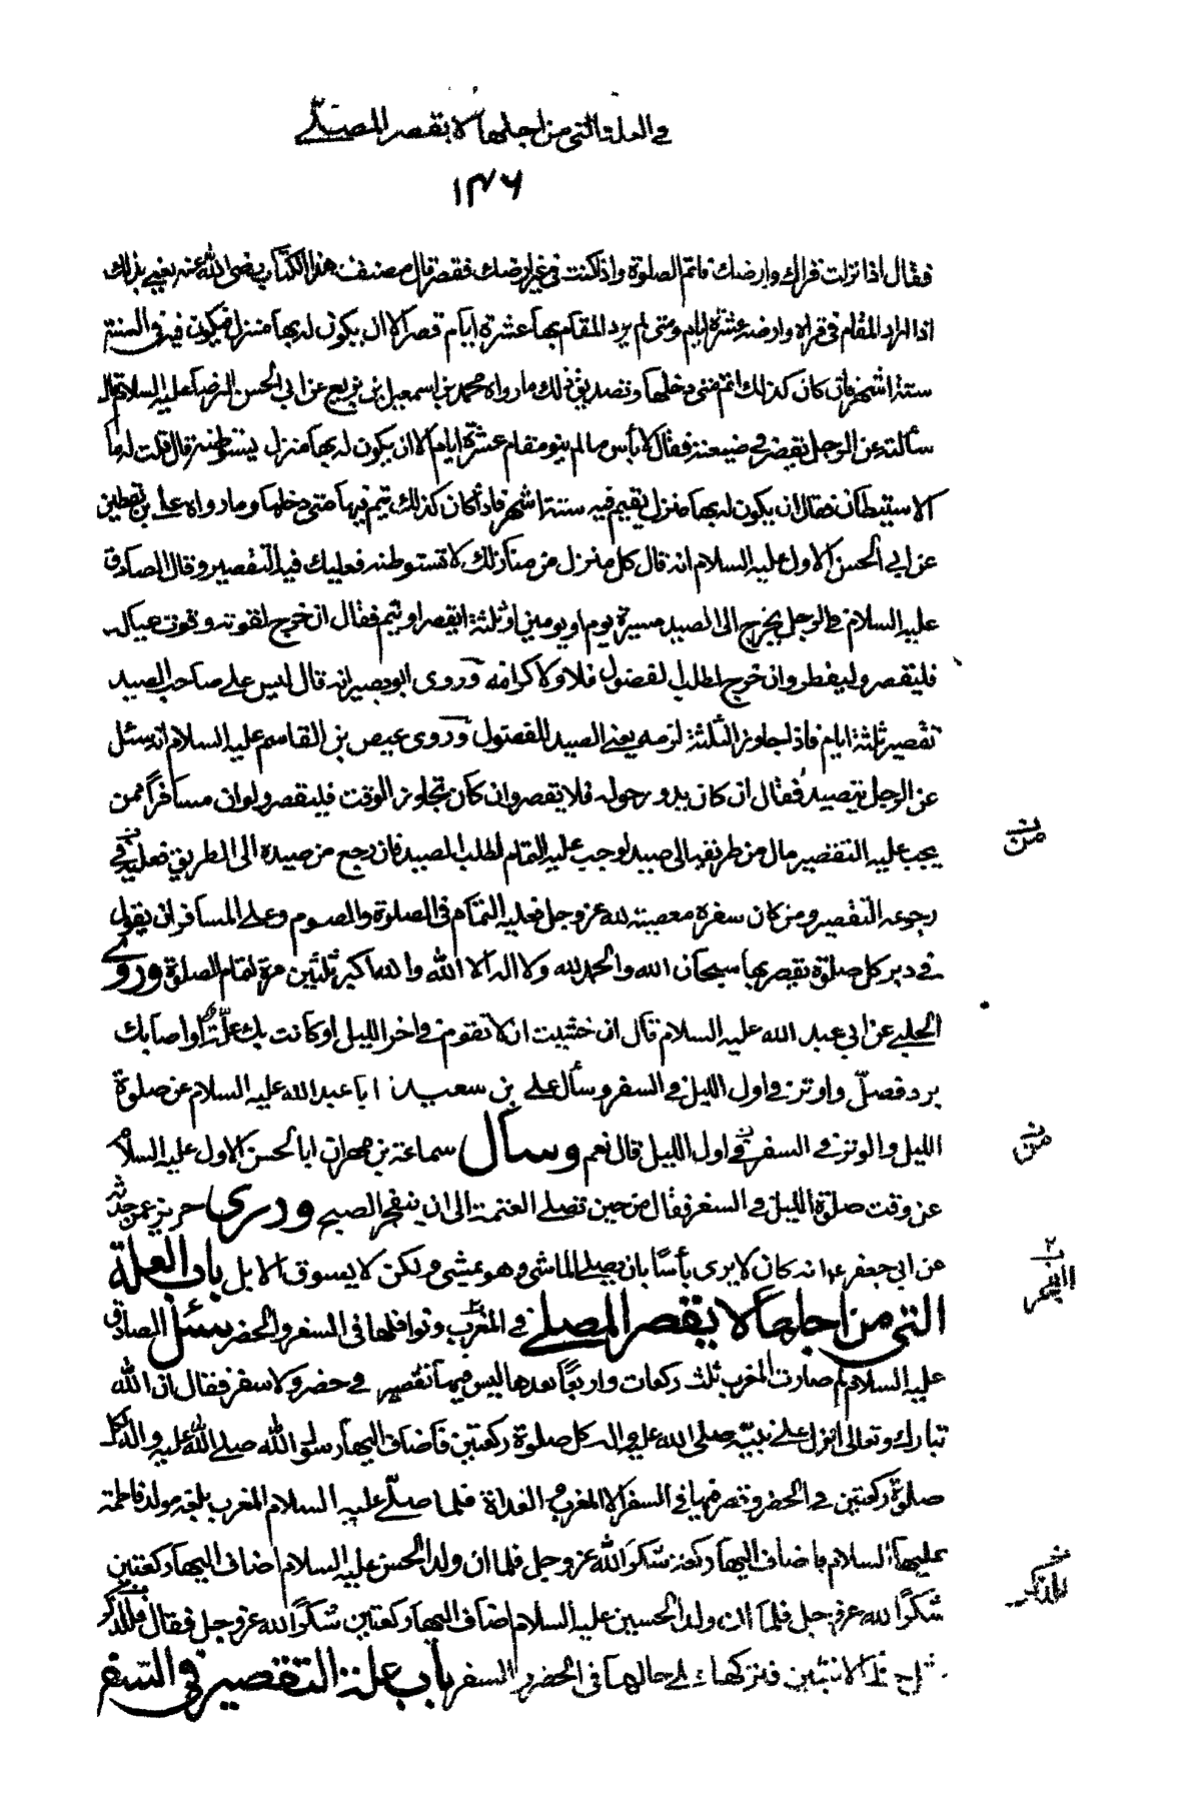 في العلة التي من اجلها لا يقصر المصلي
١٣٦
فقال اذا نزلت قراك وارضك فاتم الصلوة واذا كنت في غير ارضك فقصر قال مصنف هذا الكتاب رضى الله عنه يعني بذلك
اذا اراد المقام في قراه وارضه عشرة ايام ومتى لم يرد المقام بها عشرة ايام قصر الا ان يكون له بها منزل يكون فيه في السنة
ستة اشهر فان كان كذلك اتم متى دخلها وتصديق ذلك ما رواه محمد بن اسمعيل بن بزيع عن ابي الحسن الرضا عليه السلام قال
سألته عن الرجل يقصر في ضيعته فقال لا بأس ما لم ينو مقام عشرة ايام الا ان يكون له بها منزل يستوطنه قال قلت له ما
الاستيطان فقال ان يكون له بها منزل يقيم فيه ستة اشهر فاذا كان كذلك يتم فيها متى دخلها وما رواه علي بن يقطين
عن ابي الحسن الاول عليه السلام انه قال كل منزل من منازلك لا تستوطنه فعليك فيه التقصير وقال الصادق
عليه السلام في الرجل يخرج الى الصيد مسيرة يوم او يومين او ثلثة ايقصر او يتم فقال ان خرج لقوته وقوت عياله
فليقصر وليفطر وان خرج لطلب الفضول فلا ولا كرامة وروى ابو بصير انه قال ليس على صاحب الصيد
تقصير ثلثة ايام فاذا جاوز الثلثة لزمه يعني الصيد للفضول وروى عيص بن القاسم عليه السلام انه سئل
عن الرجل يتصيد فقال ان كان يدور حوله فلا يقصر وان كان تجاوز الوقت فليقصر ولو ان مسافراً ممن
يجب عليه التقصير مال من طريقه الى صيد لوجب عليه التمام لطلب الصيد فان رجع من صيده الى الطريق فعليه في
رجوعه التقصير ومن كان سفره معصية لله عز وجل فعليه التمام في الصلوة والصوم وعلى المسافر ان يقول
في دبر كل صلوة يقصر بها سبحان الله والحمد لله ولا اله الا الله والله اكبر ثلثين مرة لتمام الصلوة وروى
الحلبي عن ابي عبد الله عليه السلام قال ان خشيت ان لا تقوم في اخر الليل او كانت بك علة او اصابك
برد فصلّ واوتر في اول الليل في السفر وسأل علي بن سعيد ابا عبد الله عليه السلام عن صلوة
الليل والوتر في السفر في اول الليل قال نعم وسأل سماعة بن مهران ابا الحسن الاول عليه السلام
عن وقت صلوة الليل في السفر فقال من حين تصلي العتمة الى ان ينفجر الصبح وروى حريز عمن حدثه
عن ابي جعفر ع انه كان لا يرى بأسا بان يصلي الماشي وهو يمشي ولكن لا يسوق الابل باب العلة
التي من اجلها لا يقصر المصلي في المغرب ونوافلها في السفر والحضر سئل الصادق
عليه السلام لم صارت المغرب ثلث ركعات واربعاً بعدها ليس فيها تقصير في حضر ولا سفر فقال ان الله
تبارك وتعالى انزل على نبيه صلى الله عليه واله كل صلوة ركعتين فاضاف اليها رسول الله صلى الله عليه واله لكل
صلوة ركعتين في الحضر وقصر فيها في السفر الا المغرب والغداة فلما صلّى عليه السلام المغرب بلغه مولد فاطمة
عليها السلام فاضاف اليها ركعة شكراً لله عز وجل فلما ان ولد الحسن عليه السلام اضاف اليها ركعتين
شكراً لله عز وجل فلما ان ولد الحسين عليه السلام اضاف اليها ركعتين شكراً لله عز وجل فقال للذكر
مثل حظ الانثيين فتركها على حالها في الحضر والسفر باب علة التقصير في السفر